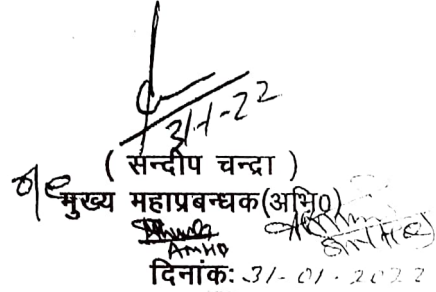 31-1-22
( सन्दीप चन्द्रा )
मुख्य महाप्रबन्धक(अभि0)
दिनांक: 31-01-2022